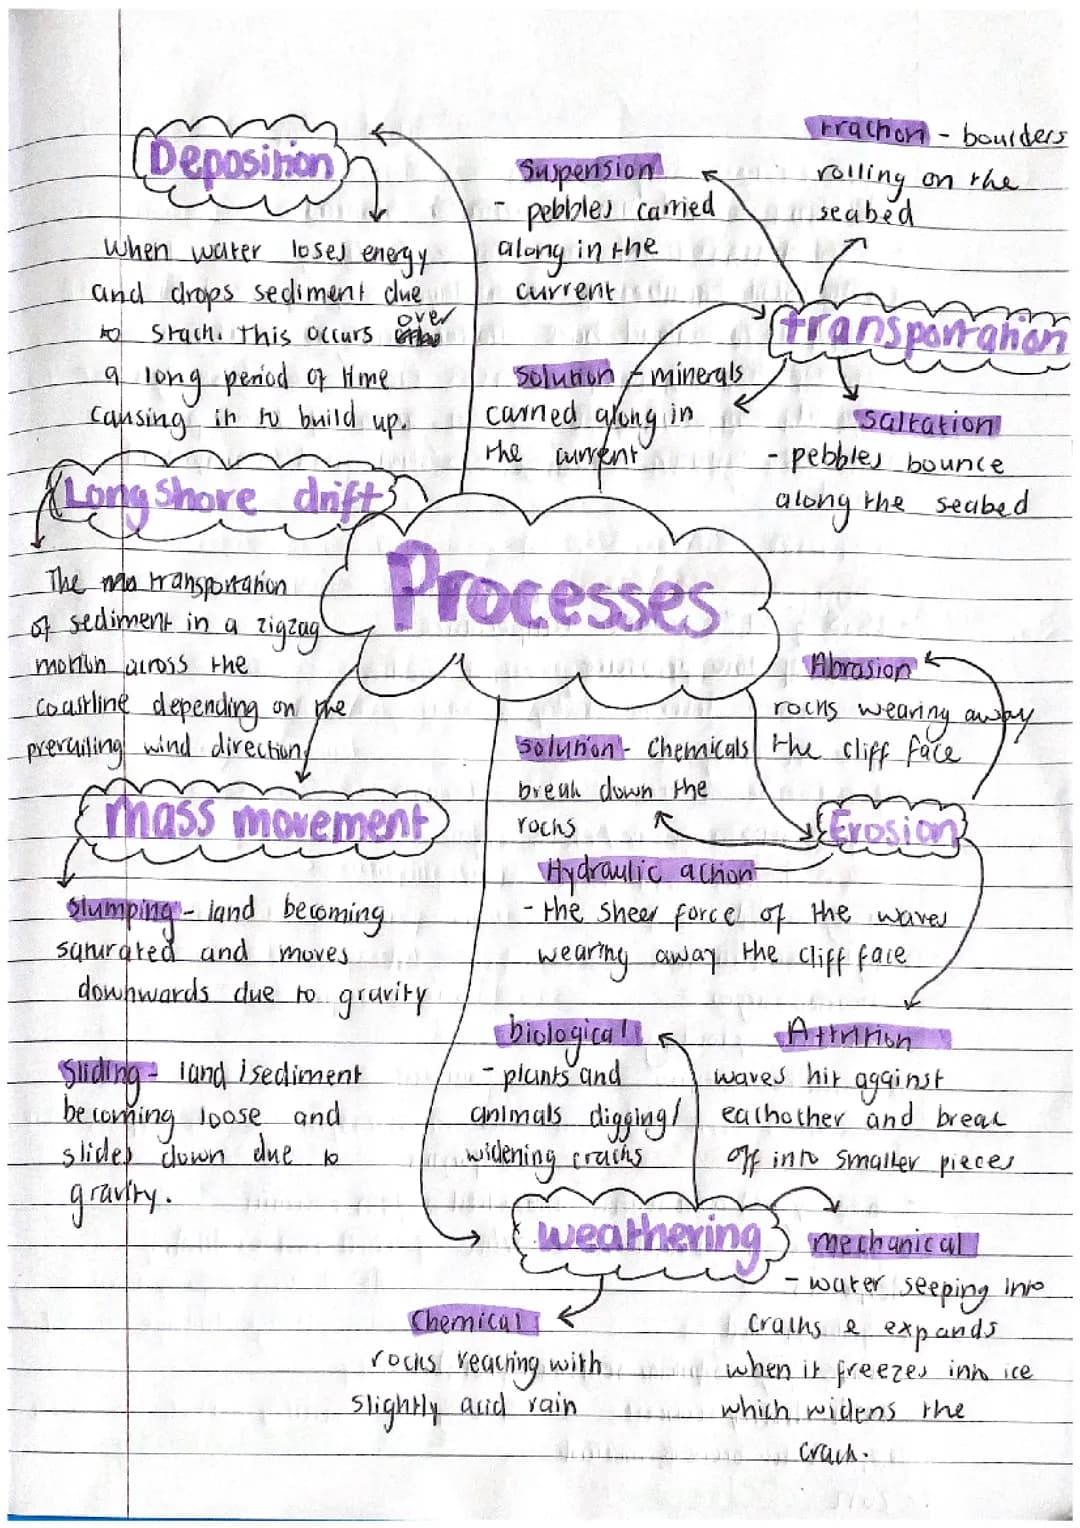 Deposition
When water loses energy
and drops sediment due
to stach. This occurs over
a long period of time
causing in to build up.
Suspension
- pebbles carried
along in the
current
traction - boulders
rolling on the
seabed
transportation
Solution - minerals
carried along in
the current
Saltation
- pebbles bounce
along the seabed
Long Shore drift
The transportation
of sediment in a zigzag
motion across the
coastline depending on the
prevailing wind direction
Processes
Mass movement
Slumping - land becoming
saturated and moves
downwards due to gravity
Sliding - land/sediment
becoming loose and
slides down due to
gravity.
Abrasion
rocks wearing away
the cliff face
Solution - Chemicals
break down the
rocks
Erosion
Hydraulic action
- the sheer force of the waves
wearing away the cliff face
Attrition
waves hit against
eachother and break
off into smaller pieces
biological
- plants and
animals digging/
widening cracks
weathering
mechanical
- water seeping into
cracks & expands
when it freezes into ice
which widens the
crack.
Chemical
rocks reacting with
slightly acid rain